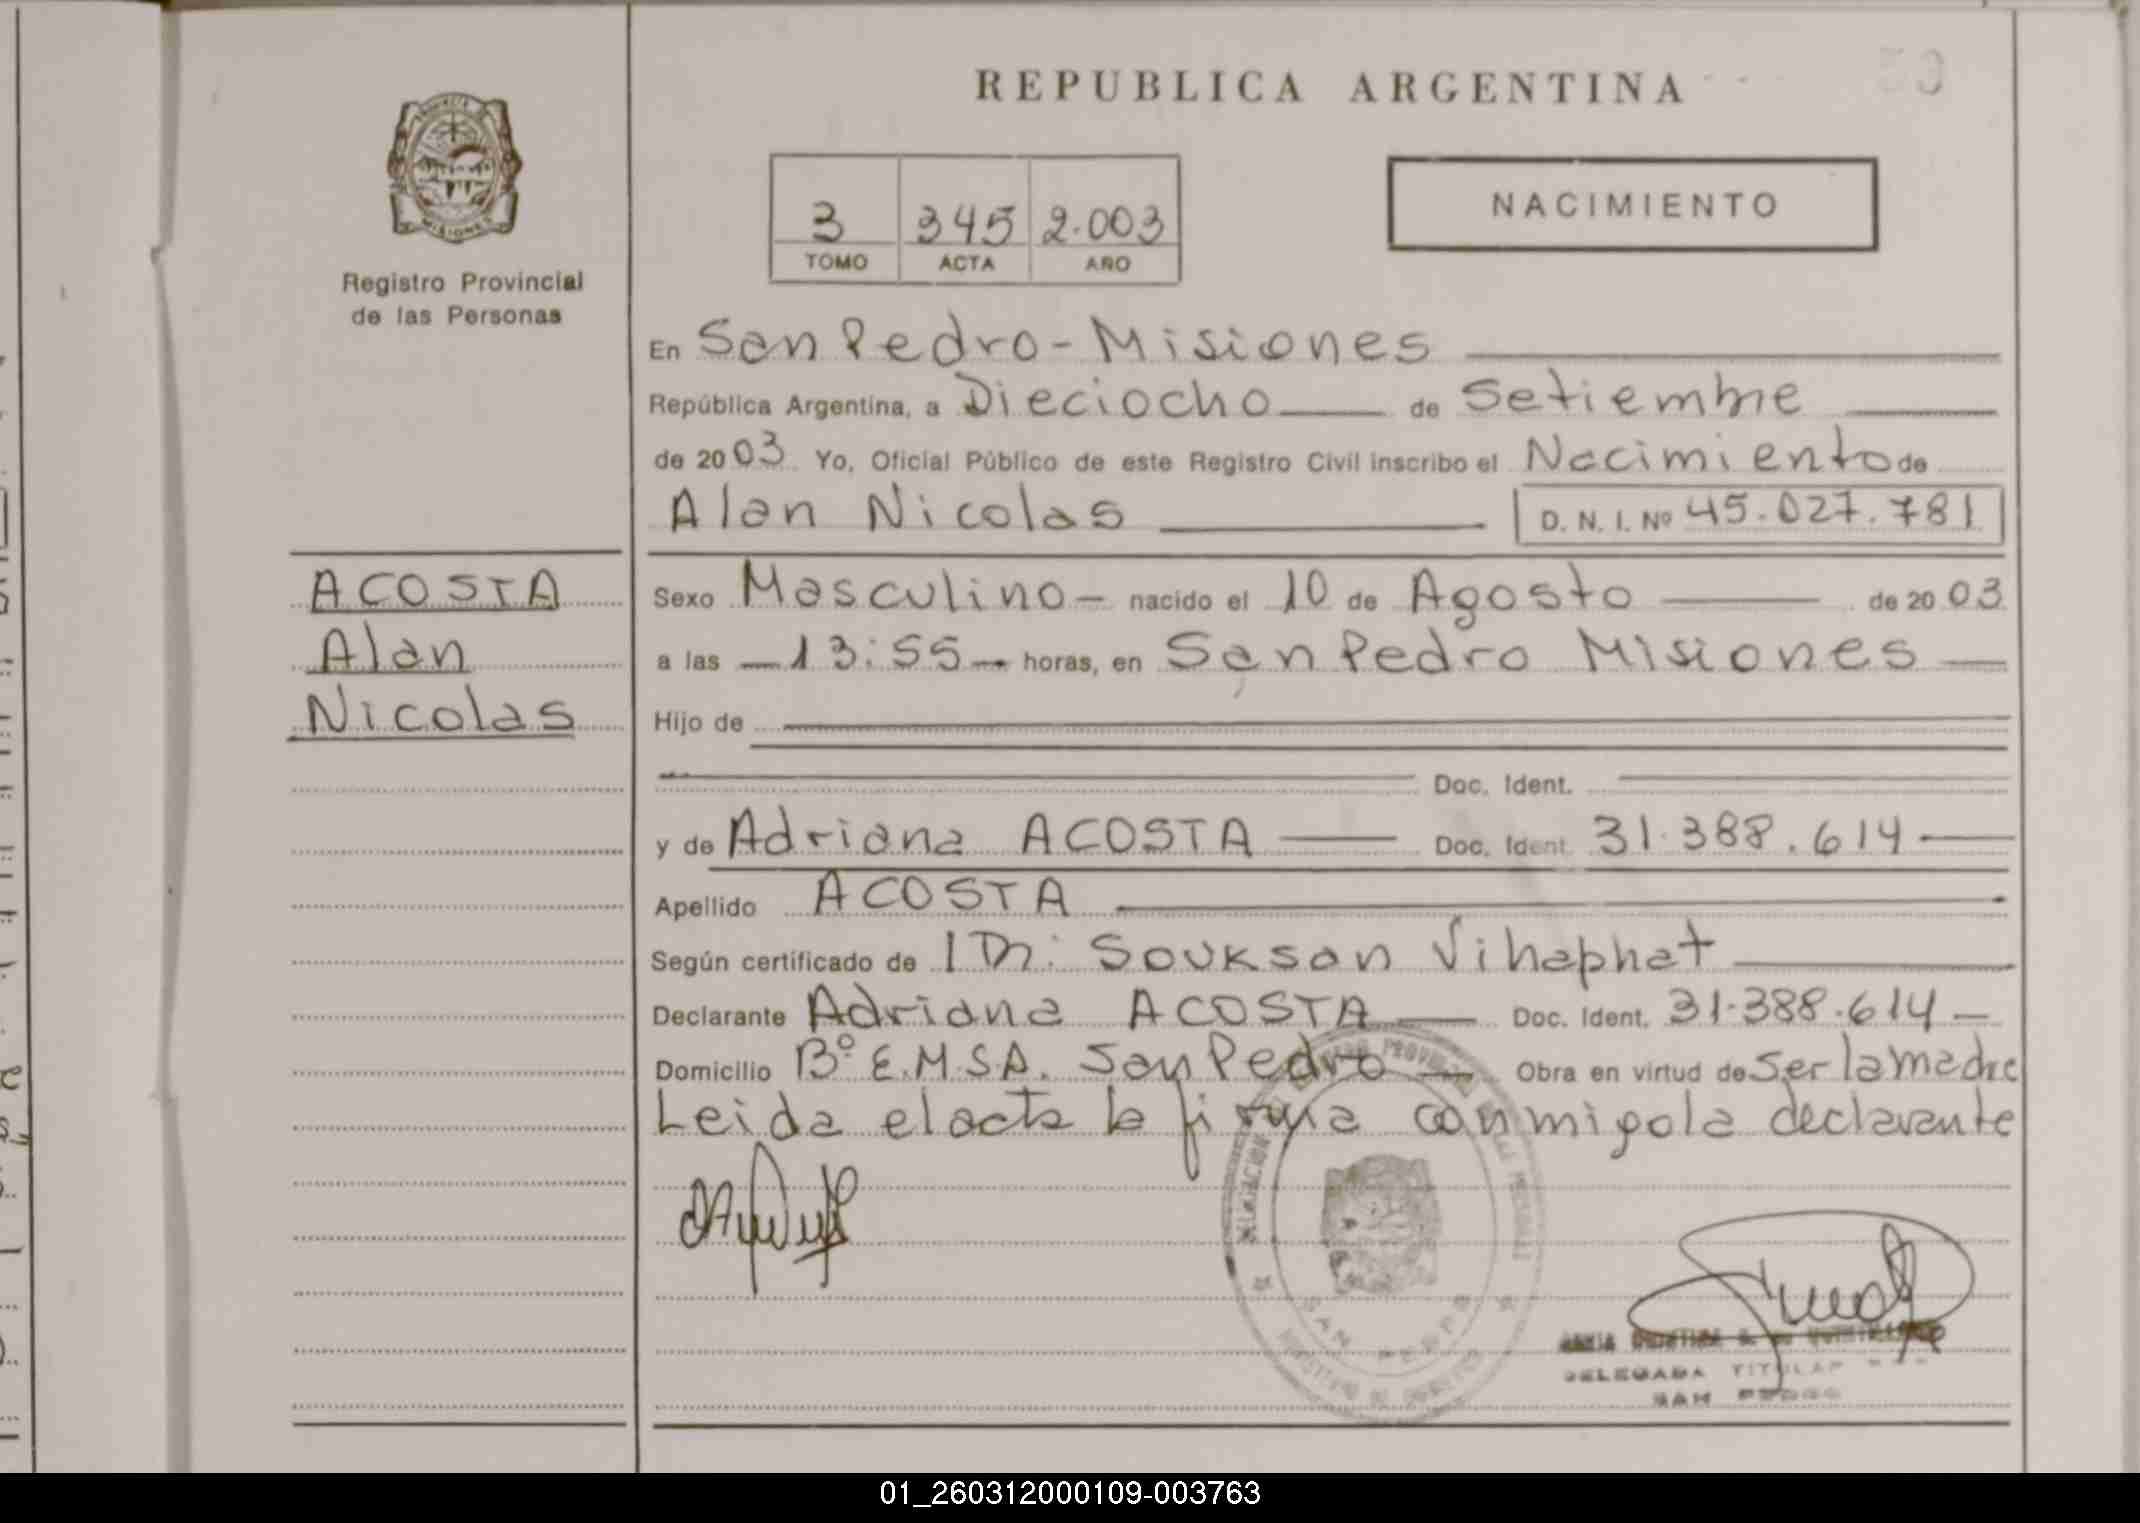 REPUBLICA ARGENTINA
50
MISIONES
Registro Provincial
de las Personas
3 345 2.003
TOMO ACTA AÑO
NACIMIENTO
En San Pedro - Misiones
República Argentina, a Dieciocho de Setiembre
de 2003 Yo, Oficial Público de este Registro Civil inscribo el Nacimiento de
Alan Nicolas D. N. I. Nº 45.027.781
ACOSTA
Alan
Nicolas
Sexo Masculino - nacido el 10 de Agosto de 2003
a las 13:55 horas, en San Pedro Misiones
Hijo de
Doc. Ident.
y de Adriana ACOSTA Doc. Ident. 31.388.614
Apellido ACOSTA
Según certificado de Souksan Vihaphat
Declarante Adriana ACOSTA Doc. Ident. 31.388.614
Domicilio Bº E.M.S.A. San Pedro Obra en virtud de Ser la madre
Leida el acta la firma conmigo la declarante
SAN PEDRO
DELEGADA TITULAR
SAN PEDRO
01_260312000109-003763